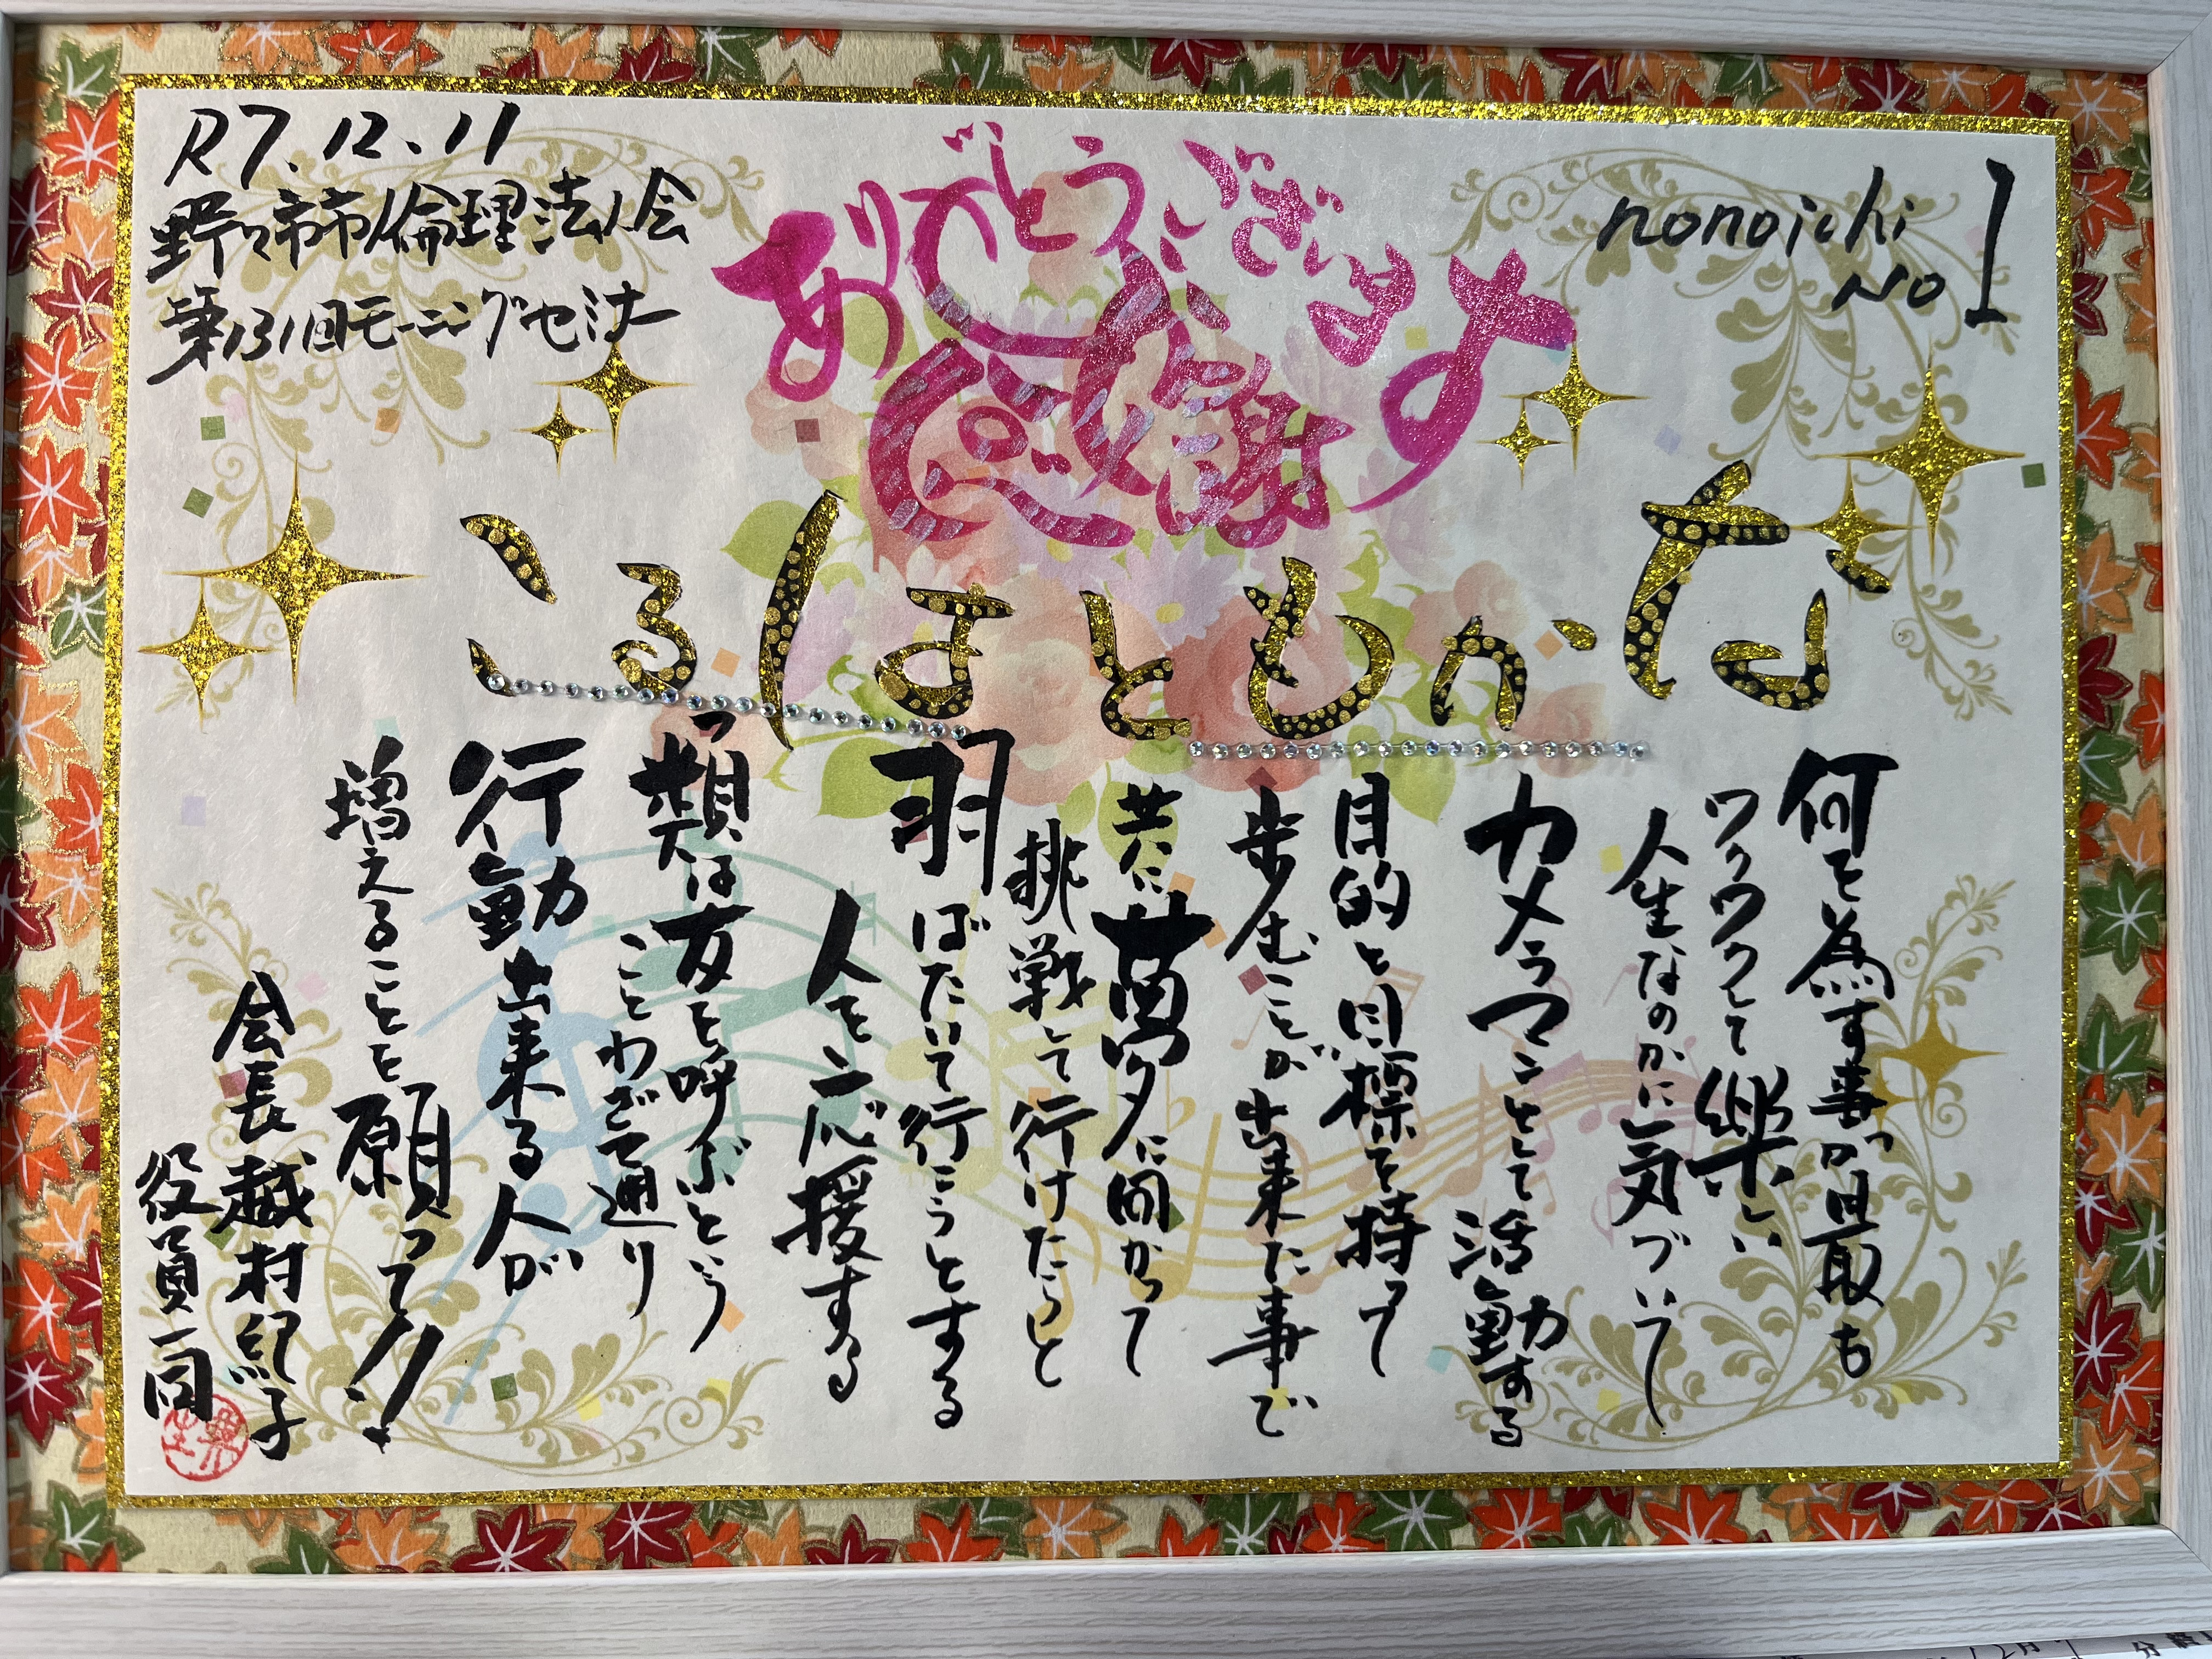 R7.12.11
野々市市倫理法人会
第131回モーニングセミナー
ありがとうございます
感謝
nonoichi
No 1
なかもとはるこ
何を為す事が最も
ワクワクして楽しい
人生なのかに気づいて
カメラマンとして活動する
目的と目標を持って
歩むことが出来た事で
共に夢に向かって
挑戦して行けたらと
羽ばたいて行こうとする
人を応援する
類は友を呼ぶという
ことわざで通り
行動出来る人が
増えることを願って!!
会長 越村紀子
役員一同